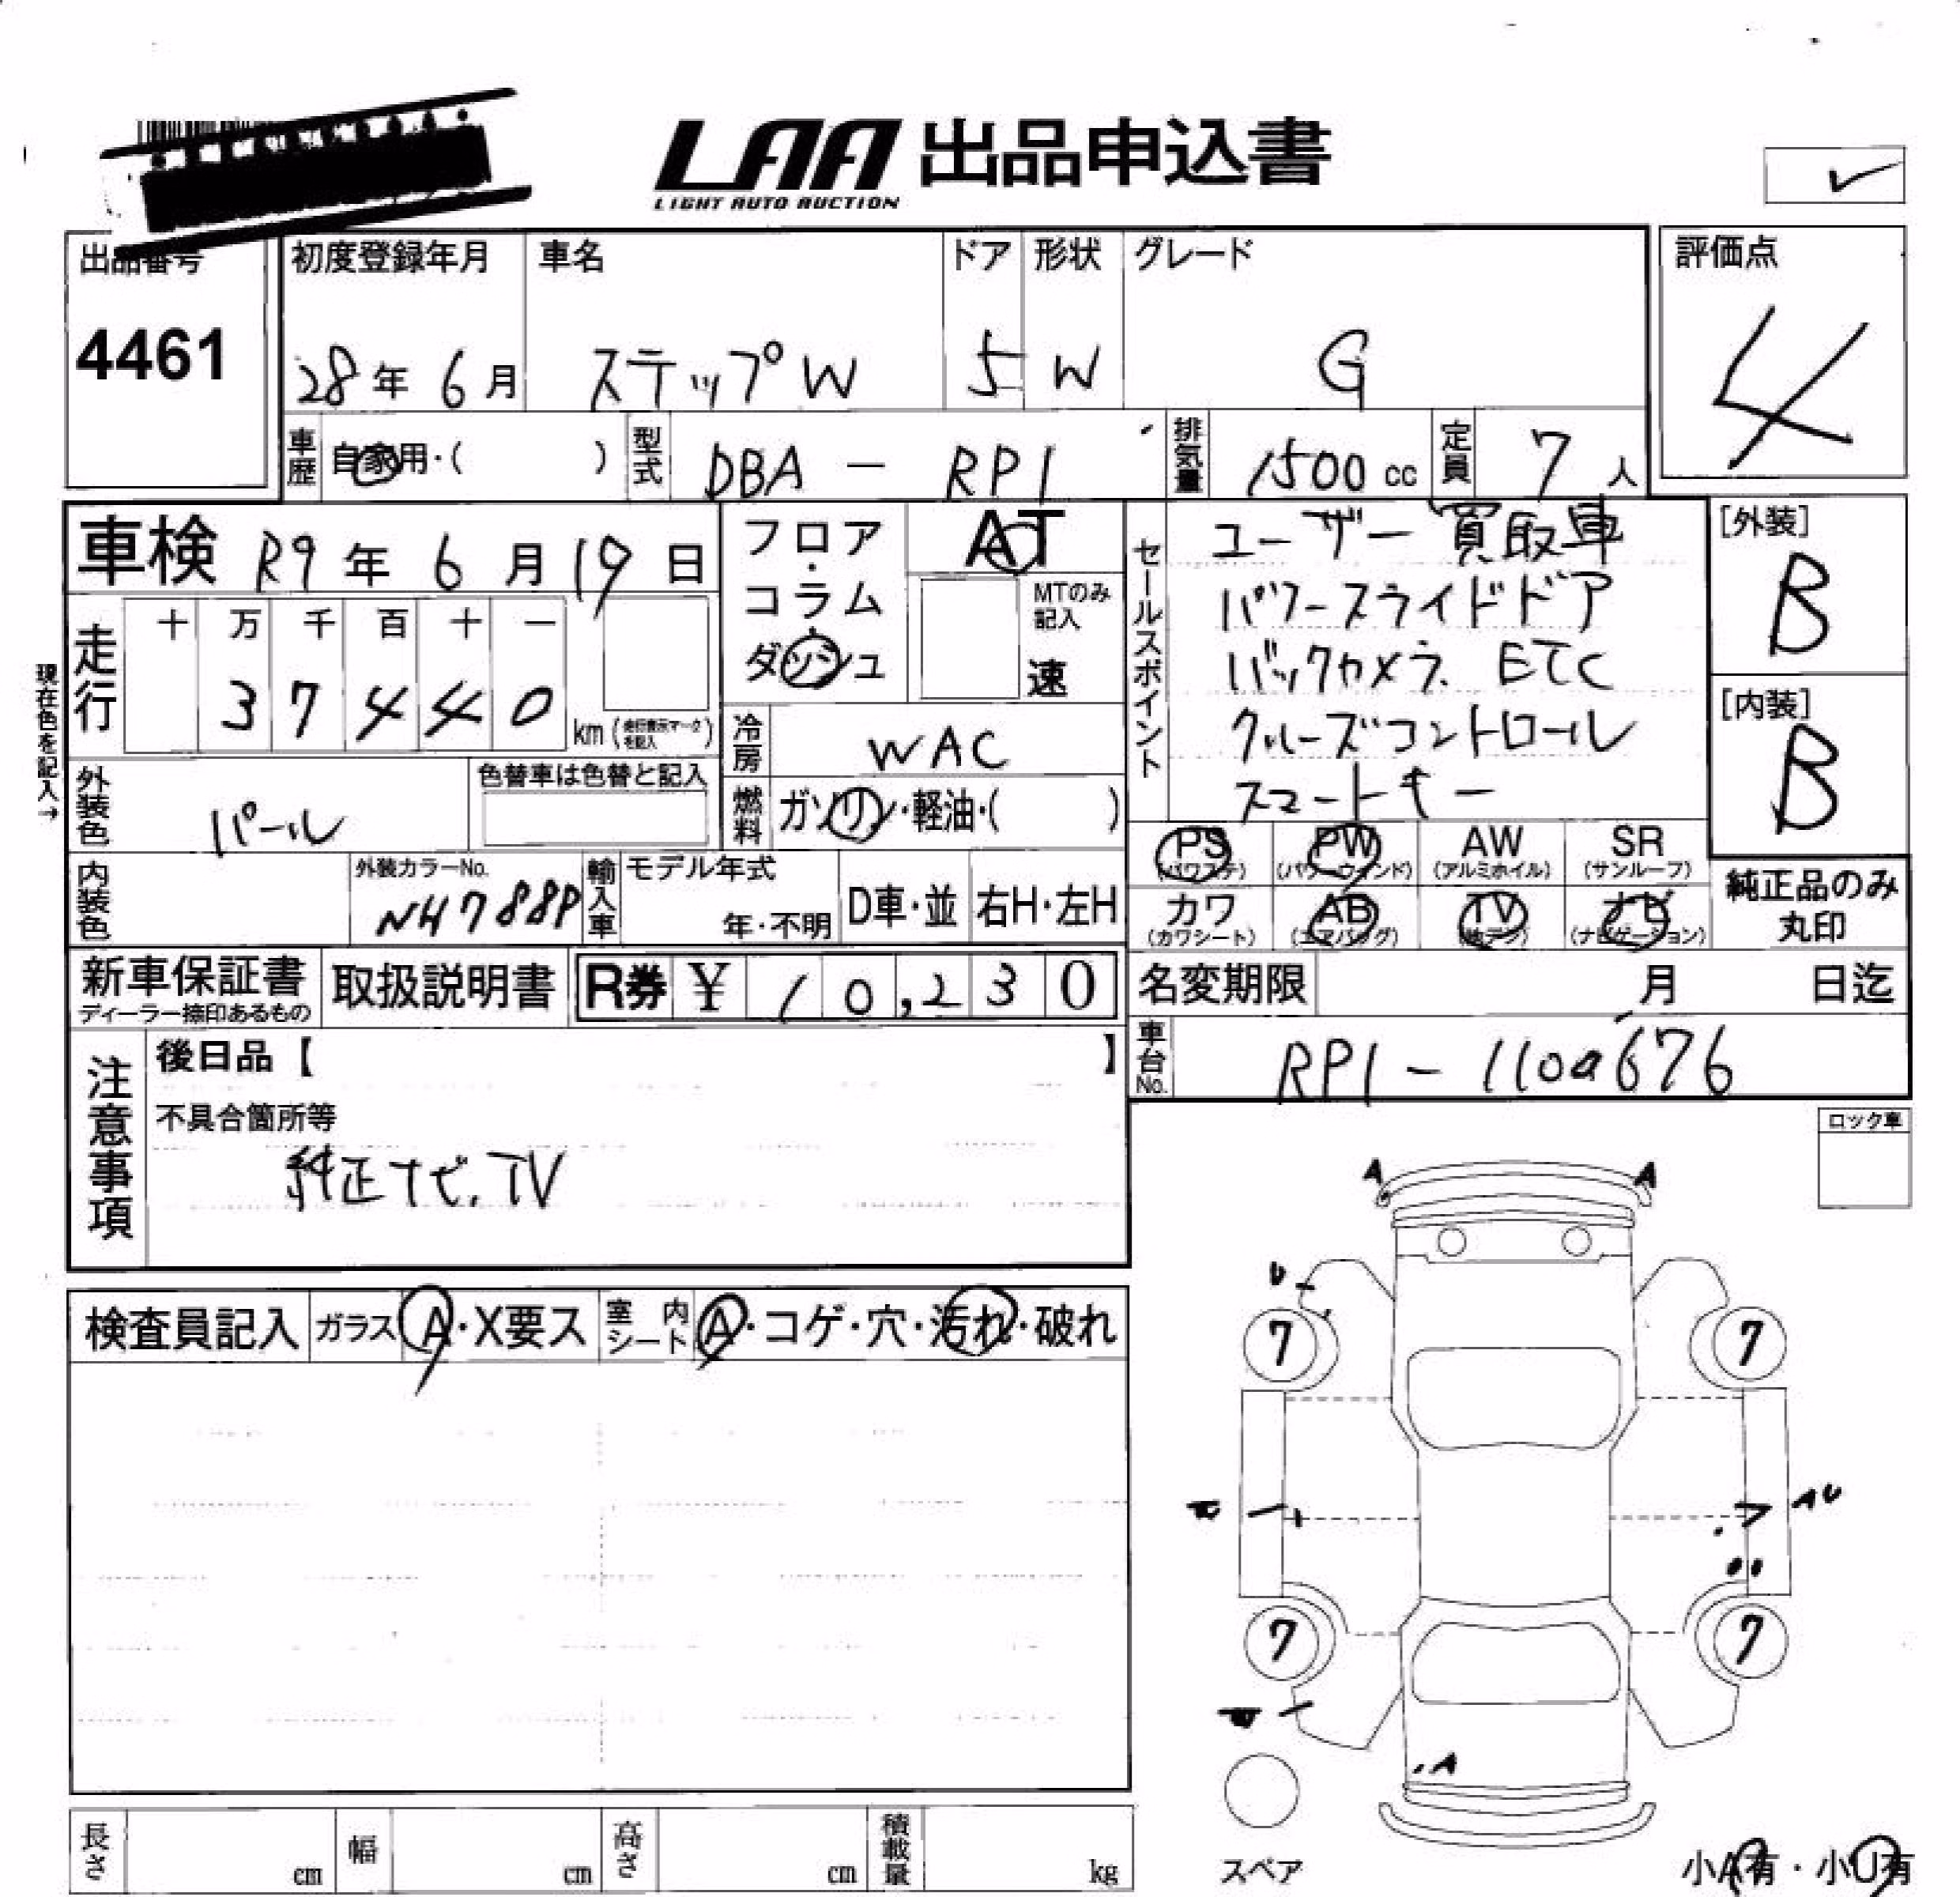 LAA 出品申込書
LIGHT AUTO AUCTION
出品番号
4461
初度登録年月
28年 6月
車名
ステップW
ドア
5
形状
W
グレード
G
評価点
4
車歴 自家用・( )
型式 DBA - RP1
排気量 1500 cc
定員 7人
車検 R9年 6月19日
走行
十 万 千 百 十 一
3 7 4 4 0
km (走行表示マークを記入)
現在色を記入→
外装色 パール
色替車は色替と記入
内装色
外装カラーNo.
NH788P
フロア・コラム・ダッシュ
AT
MTのみ記入
速
冷房 WAC
燃料 ガソリン・軽油・( )
輸入車
モデル年式
年・不明
D車・並
右H・左H
セールスポイント
ユーザー買取車
パワースライドドア
バックカメラ. ETC
クルーズコントロール
スマートキー
[外装]
B
[内装]
B
PS (パワステ)
PW (パワーウインド)
AW (アルミホイル)
SR (サンルーフ)
カワ (カワシート)
AB (エアバッグ)
TV (地デジ)
ナビ (ナビゲーション)
純正品のみ
丸印
新車保証書
ディーラー捺印あるもの
取扱説明書
R券 ¥ 10,230
名変期限 月 日迄
車台No. RP1-1100676
注意事項
後日品【 】
不具合箇所等
純正ナビ.TV
ロック車
検査員記入
ガラス A・X要ス
室内シート A・コゲ・穴・汚れ・破れ
A A
U
7 7
AU
7 7
A
スペア
小A有・小U有
長さ cm
幅 cm
高さ cm
積載量 kg